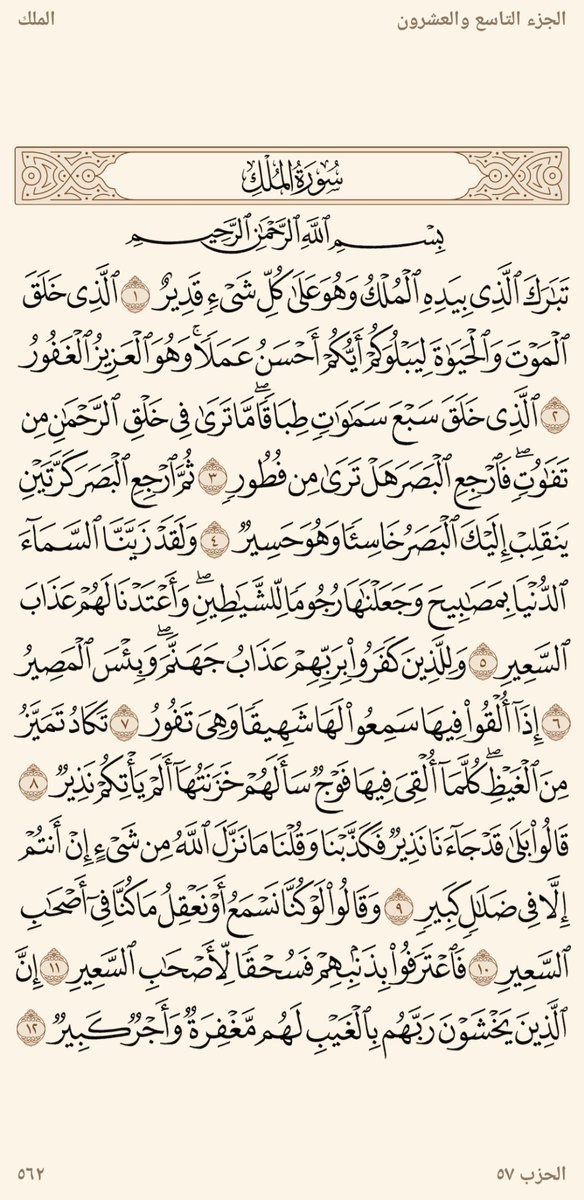 الجزء التاسع والعشرون
الملك
سُورَةُ المُلْكِ
بِسْمِ ٱللَّهِ ٱلرَّحْمَٰنِ ٱلرَّحِيمِ
تَبَٰرَكَ ٱلَّذِى بِيَدِهِ ٱلْمُلْكُ وَهُوَ عَلَىٰ كُلِّ شَىْءٍ قَدِيرٌ ١ ٱلَّذِى خَلَقَ
ٱلْمَوْتَ وَٱلْحَيَوٰةَ لِيَبْلُوَكُمْ أَيُّكُمْ أَحْسَنُ عَمَلًا ۚ وَهُوَ ٱلْعَزِيزُ ٱلْغَفُورُ
٢ ٱلَّذِى خَلَقَ سَبْعَ سَمَٰوَٰتٍ طِبَاقًا ۖ مَّا تَرَىٰ فِى خَلْقِ ٱلرَّحْمَٰنِ مِن
تَفَٰوُتٍ ۖ فَٱرْجِعِ ٱلْبَصَرَ هَلْ تَرَىٰ مِن فُطُورٍ ٣ ثُمَّ ٱرْجِعِ ٱلْبَصَرَ كَرَّتَيْنِ
يَنقَلِبْ إِلَيْكَ ٱلْبَصَرُ خَاسِئًا وَهُوَ حَسِيرٌ ٤ وَلَقَدْ زَيَّنَّا ٱلسَّمَآءَ
ٱلدُّنْيَا بِمَصَٰبِيحَ وَجَعَلْنَٰهَا رُجُومًا لِّلشَّيَٰطِينِ ۖ وَأَعْتَدْنَا لَهُمْ عَذَابَ
ٱلسَّعِيرِ ٥ وَلِلَّذِينَ كَفَرُوا۟ بِرَبِّهِمْ عَذَابُ جَهَنَّمَ ۖ وَبِئْسَ ٱلْمَصِيرُ
٦ إِذَآ أُلْقُوا۟ فِيهَا سَمِعُوا۟ لَهَا شَهِيقًا وَهِىَ تَفُورُ ٧ تَكَادُ تَمَيَّزُ
مِنَ ٱلْغَيْظِ ۖ كُلَّمَآ أُلْقِىَ فِيهَا فَوْجٌ سَأَلَهُمْ خَزَنَتُهَآ أَلَمْ يَأْتِكُمْ نَذِيرٌ ٨
قَالُوا۟ بَلَىٰ قَدْ جَآءَنَا نَذِيرٌ فَكَذَّبْنَا وَقُلْنَا مَا نَزَّلَ ٱللَّهُ مِن شَىْءٍ إِنْ أَنتُمْ
إِلَّا فِى ضَلَٰلٍ كَبِيرٍ ٩ وَقَالُوا۟ لَوْ كُنَّا نَسْمَعُ أَوْ نَعْقِلُ مَا كُنَّا فِىٓ أَصْحَٰبِ
ٱلسَّعِيرِ ١٠ فَٱعْتَرَفُوا۟ بِذَنۢبِهِمْ فَسُحْقًا لِّأَصْحَٰبِ ٱلسَّعِيرِ ١١ إِنَّ
ٱلَّذِينَ يَخْشَوْنَ رَبَّهُم بِٱلْغَيْبِ لَهُم مَّغْفِرَةٌ وَأَجْرٌ كَبِيرٌ ١٢
الحزب ٥٧
٥٦٢